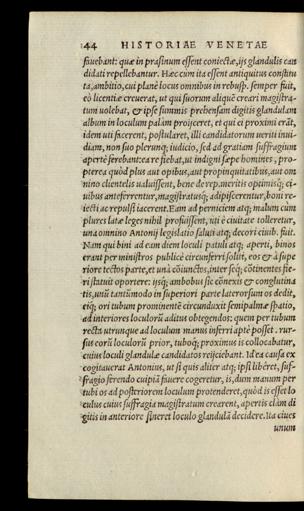 144 HISTORIAE VENETAE
fauebant: quæ in prasinum essent coniectæ, ijs glandulis can
didati repellebantur. Hæc cum ita essent antiquitus constitu
ta, ambitio, cui planè locus omnibus in rebusp. semper fuit,
eò licentiæ creuerat, ut qui suorum aliquē creari magistra-
tum uolebat, & ipse summis prehensam digitis glandulam
album in loculum palam projceret, et qui ei proximi erāt,
idem uti facerent, postularet, illi candidatorum ueriti inui-
diam, non suo plerunq; iudicio, sed ad gratiam suffragium
apertè ferebant: ea re fiebat, ut indigni sæpe homines, pro-
pterea quòd plus aut opibus, aut propinquitatibus, aut om
nino clientelis ualuissent, bene de rep. meritis optimisq; ci-
uibus anteferrentur, magistratusq; adipiscerentur, boni re-
iecti ac repulsi iacerent. Eam ad perniciem atq; malum cùm
plures latæ leges nihil profuissent, uti è ciuitate tolleretur,
una omnino Antonij legislatio saluti atq; decori ciuib. fuit.
Nam qui bini ad eam diem loculi patuli atq; aperti, binos
erant per ministros publicè circunferri soliti, eos & à supe
riore tectos parte, et unà cōiunctos, inter seq; cōtinentes fie-
ri statuit oportere: ijsq; ambobus sic cōnexis & conglutina
tis, unū tantūmodo in superiori parte laterorsum os dedit,
eiq; ori tubum prominentē circunduxit semipalmæ spatio,
ad interiores loculorū aditus obtegendos: quem per tubum
rectà utrunque ad loculum manus inferri aptè posset. rur-
sus eorū loculorū prior, tuboq; proximus is collocabatur,
cuius loculi glandulæ candidatos reijciebant. Id ea causa ex
cogitauerat Antonius, ut si quis aliter atq; ipsi libêret, suf-
fragio ferendo cuipiā fauere cogeretur, is, dum manum per
tubi os ad posteriorem loculum protenderet, quòd is esset lo
culus cuius suffragia magistratum crearent, apertis clàm di
gitis in anteriore sineret loculo glandulā decidere. Ita ciues
unum